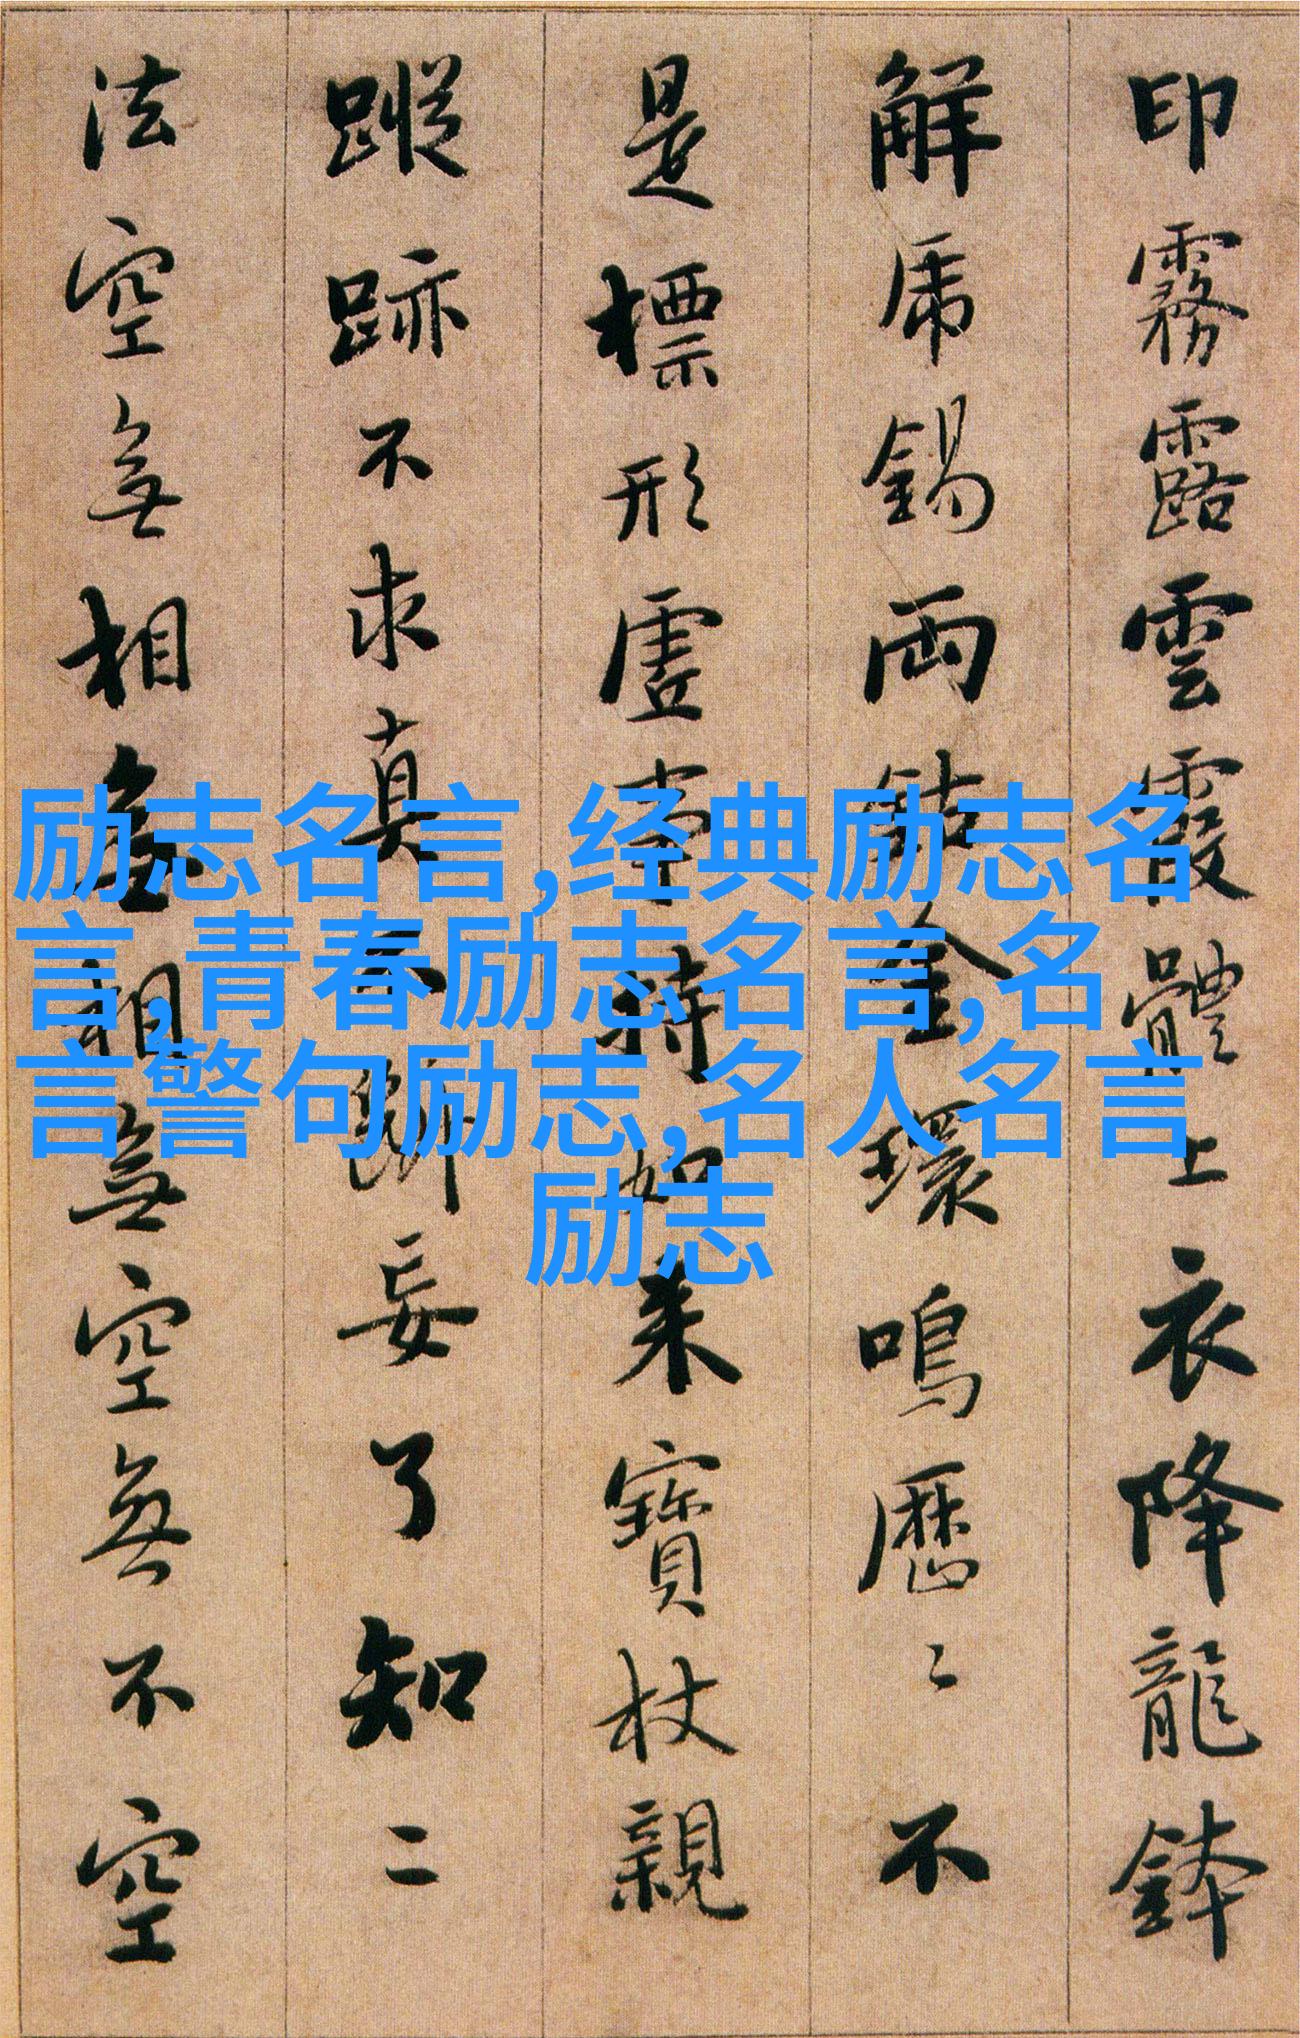 印霧露雲霞體上衣降龍鉢
解虎錫兩鈷金環鳴歷〻不
是標形虛事持如來寶杖親
蹤跡不求真不斷妄了知二
法空無相無相無空無不空
励志名言,经典励志名
言,青春励志名言,名
言警句励志,名人名言
励志